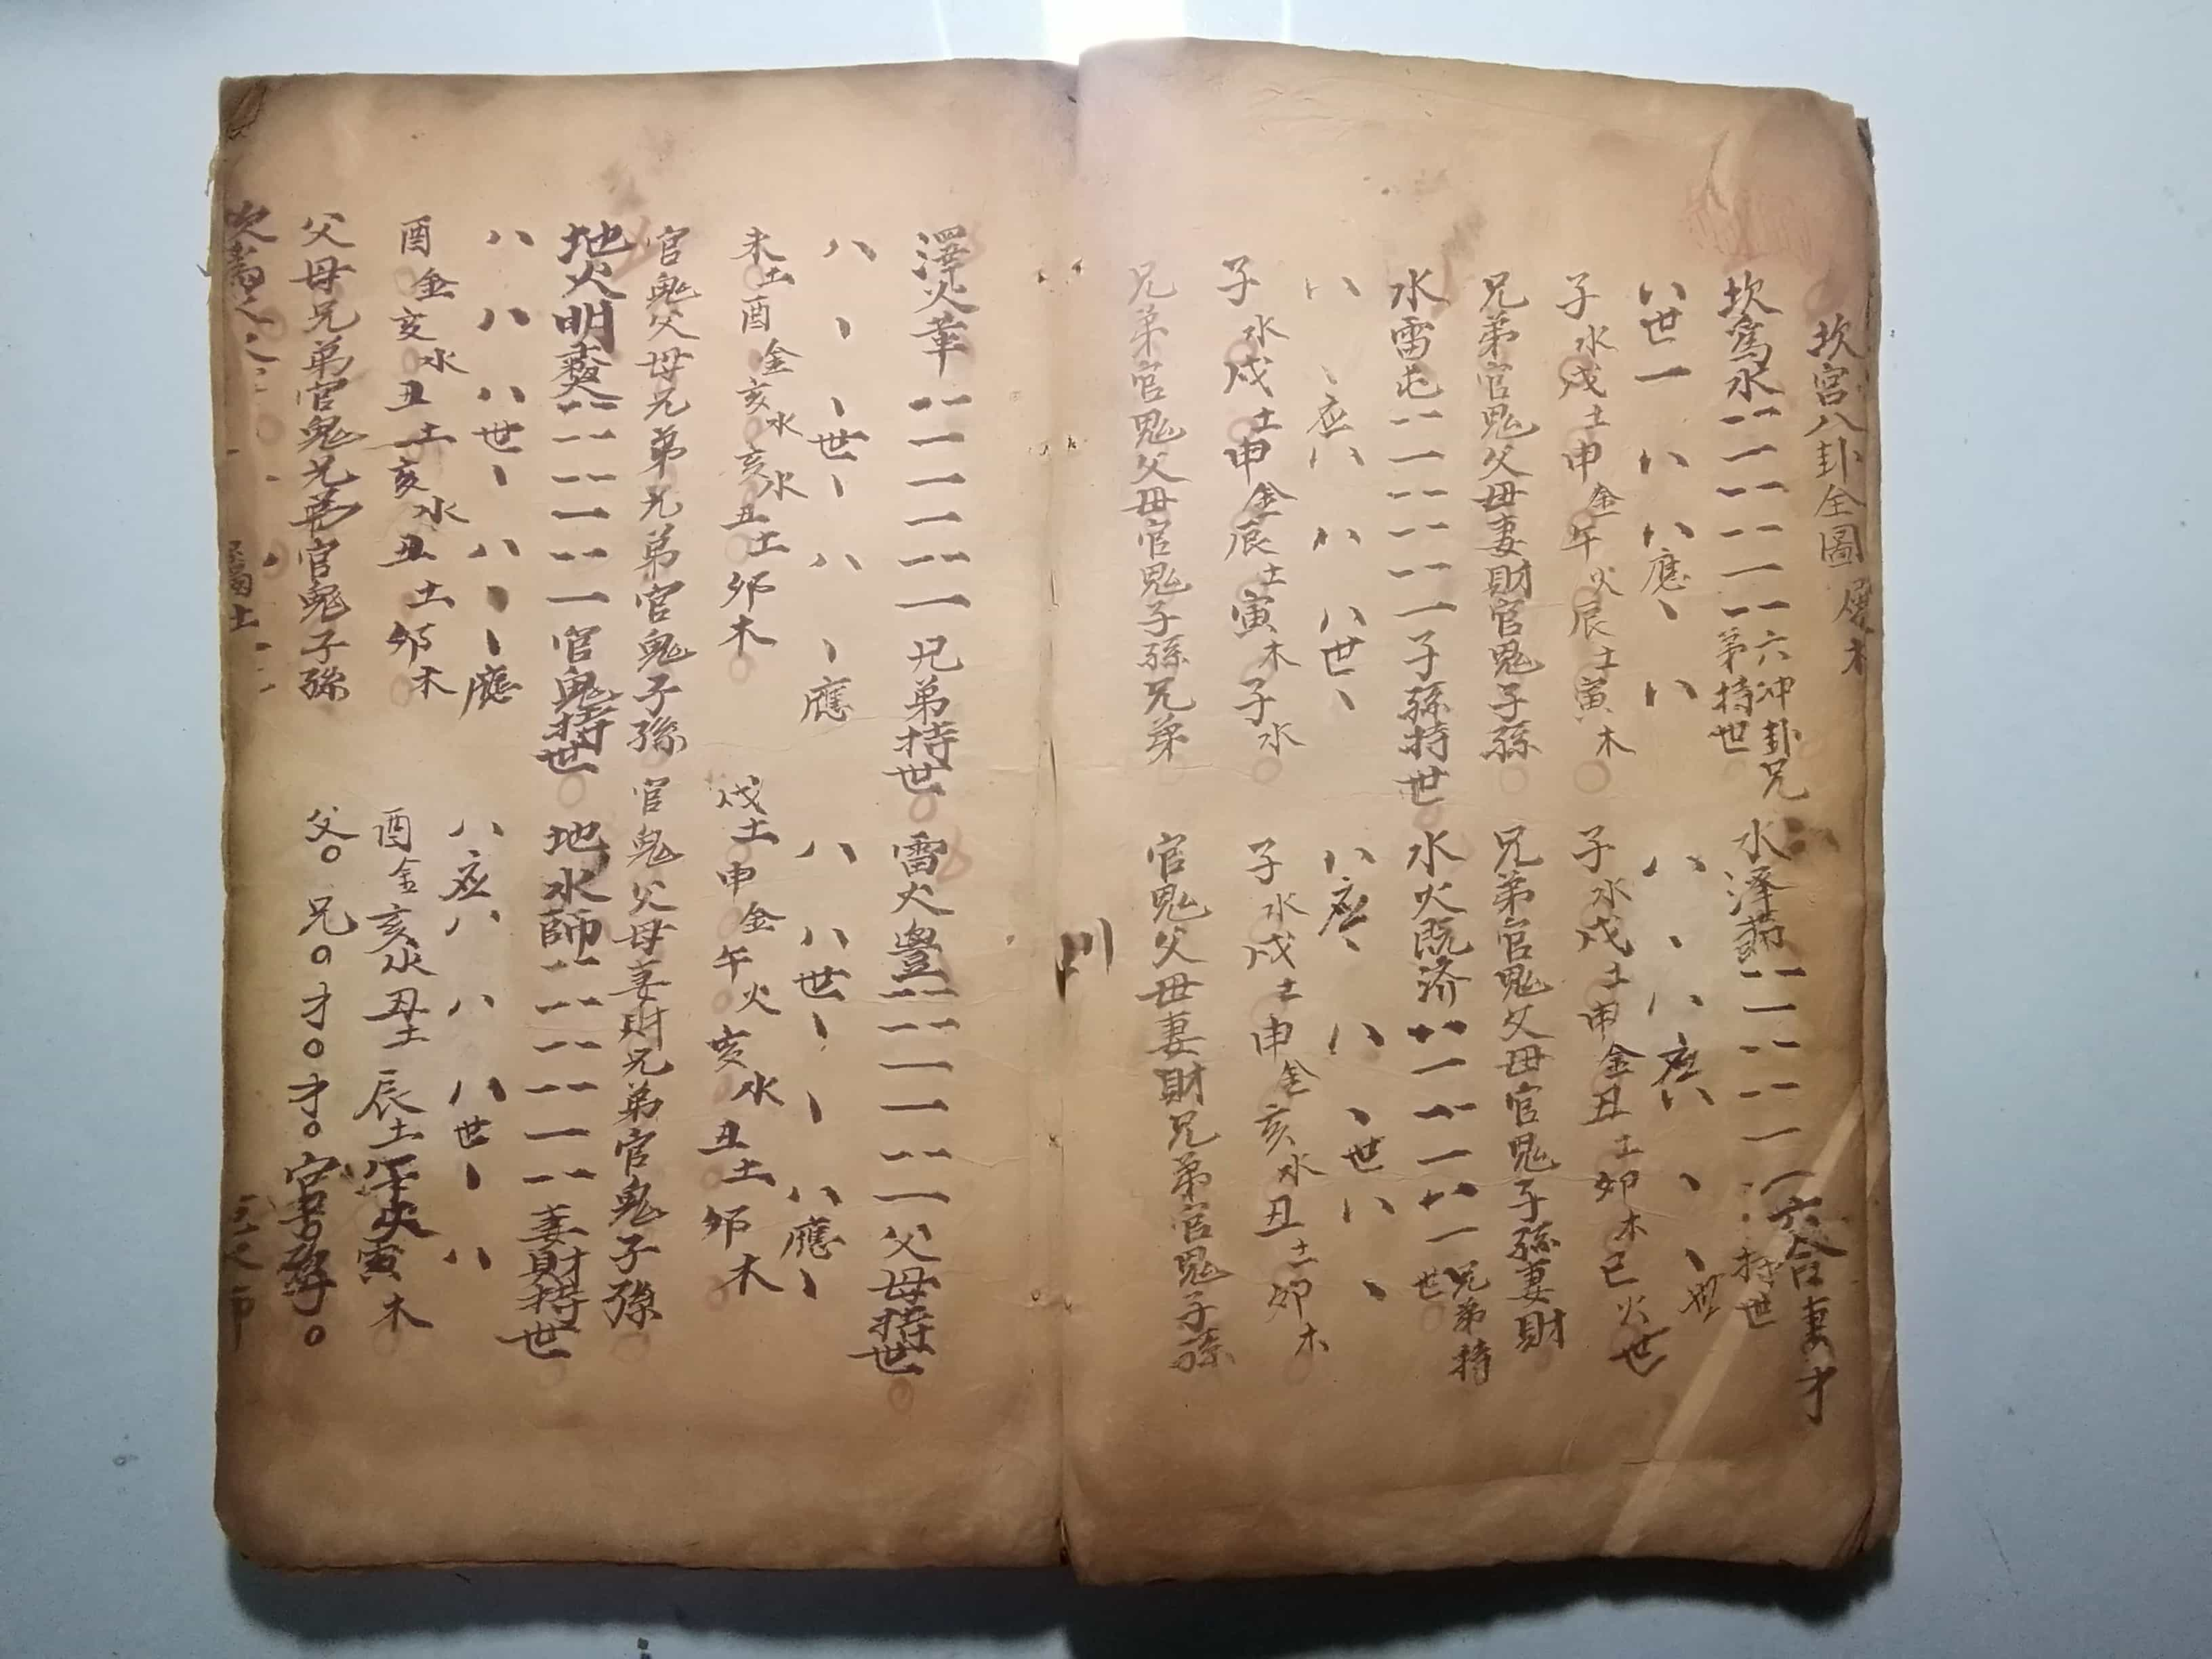 坎宮八卦全圖 屬水
坎為水⚋⚊⚋⚋⚊⚋六冲卦兄弟持世
八世一八八應丶八
子水戌土申金午火辰土寅木
兄弟官鬼父母妻財官鬼子孫
水澤節⚋⚊⚋⚋⚊⚊六合妻才持世
八丶八應八丶丶世
子水戌土申金丑土卯木巳火世
兄弟官鬼父母官鬼子孫妻財
水雷屯⚋⚊⚋⚋⚋⚊子孫持世
八丶应八八八世丶
子水戌土申金辰土寅木子水
兄弟官鬼父母官鬼子孫兄弟
水火既济⚋⚊⚋⚊⚋⚊兄弟持世
八應丶八丶世八丶
子水戌土申金亥水丑土卯木
官鬼父母妻財兄弟官鬼子孫
澤火革⚋⚊⚊⚊⚋⚊兄弟持世
八丶丶世丶八丶應
未土酉金亥水亥水丑土卯木
官鬼父母兄弟兄弟官鬼子孫
雷火豐⚋⚋⚊⚊⚋⚊父母持世
八八世丶丶八應丶
戌土申金午火亥水丑土卯木
官鬼父母妻財兄弟官鬼子孫
地火明夷⚋⚋⚋⚊⚋⚊官鬼持世
八八八世丶八丶應
酉金亥水丑土亥水丑土卯木
父母兄弟官鬼兄弟官鬼子孫
地水師⚋⚋⚋⚋⚊⚋妻財持世
八应八八八世丶八
酉金亥水丑土辰土午火寅木
父○兄○才○才○官○孫○